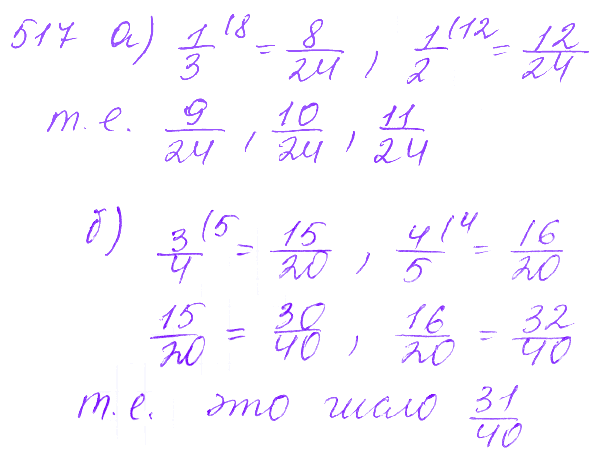 517 а) 1/3 (8 = 8/24 , 1/2 (12 = 12/24
т.е. 9/24 , 10/24 , 11/24
б) 3/4 (5 = 15/20 , 4/5 (4 = 16/20
15/20 = 30/40 , 16/20 = 32/40
т.е. это число 31/40